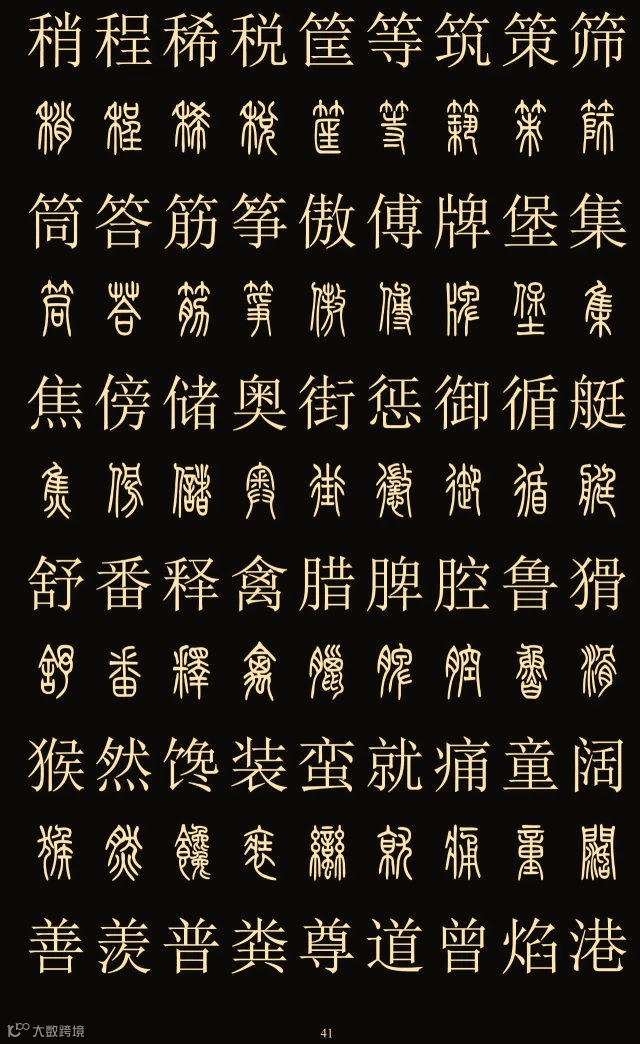 稍程稀税筐等筑策筛
稍程稀税筐等築策篩
筒答筋筝傲傅牌堡集
筒荅筋箏傲傅牌堡集
焦傍储奥街惩御循艇
焦傍儲奥街懲御循艇
舒番释禽腊脾腔鲁猾
舒番釋禽臘脾腔魯滑
猴然馋装蛮就痛童阔
猴然饞裝蠻就痛童闊
善羡普粪尊道曾焰港
41
大数跨境